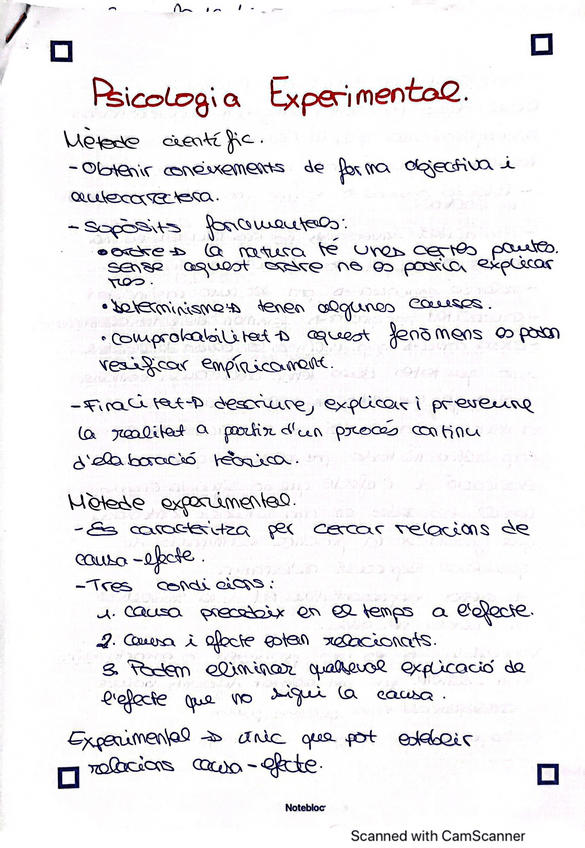 Psicologia Experimental.
Mètode científic.
- Obtenir coneixements de forma objectiva i
autocorrectora.
- Supòsits fonamentals:
• ordre → la natura té unes certes pautes.
sense aquest ordre no es podria explicar
res.
• Determinisme → tenen algunes causes.
• comprobabilitat → aquest fenòmens es poden
verificar empíricament.
- Finalitat → descriure, explicar i preveure
la realitat a partir d'un procés continu
d'elaboració teòrica.
Mètode experimental.
- Es caracteritza per cercar relacions de
causa-efecte.
- Tres condicions:
1. Causa precedeix en el temps a l'efecte.
2. Causa i efecte estan relacionats.
3. Podem eliminar qualsevol explicació de
l'efecte que no sigui la causa.
Experimental → únic que pot establir
relacions causa-efecte.
Notebloc
Scanned with CamScanner